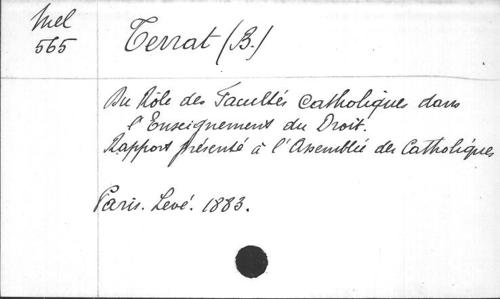 Mel
565
Terrat (B.)
Du Rôle des Facultés Catholiques dans
l'Enseignement du Droit.
Rapport présenté à l'Assemblée des Catholiques
Paris. Levé. 1883.